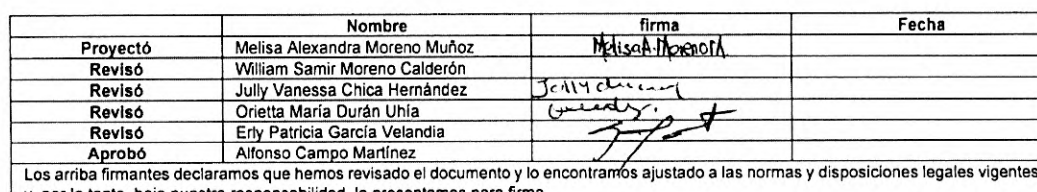 Nombre firma Fecha
Proyectó Melisa Alexandra Moreno Muñoz MelisaA.MorenoM.
Revisó William Samir Moreno Calderón
Revisó Jully Vanessa Chica Hernández
Revisó Orietta María Durán Uhía
Revisó Erly Patricia García Velandia
Aprobó Alfonso Campo Martínez
Los arriba firmantes declaramos que hemos revisado el documento y lo encontramos ajustado a las normas y disposiciones legales vigentes
y, por lo tanto, bajo nuestra responsabilidad, lo presentamos para firma.